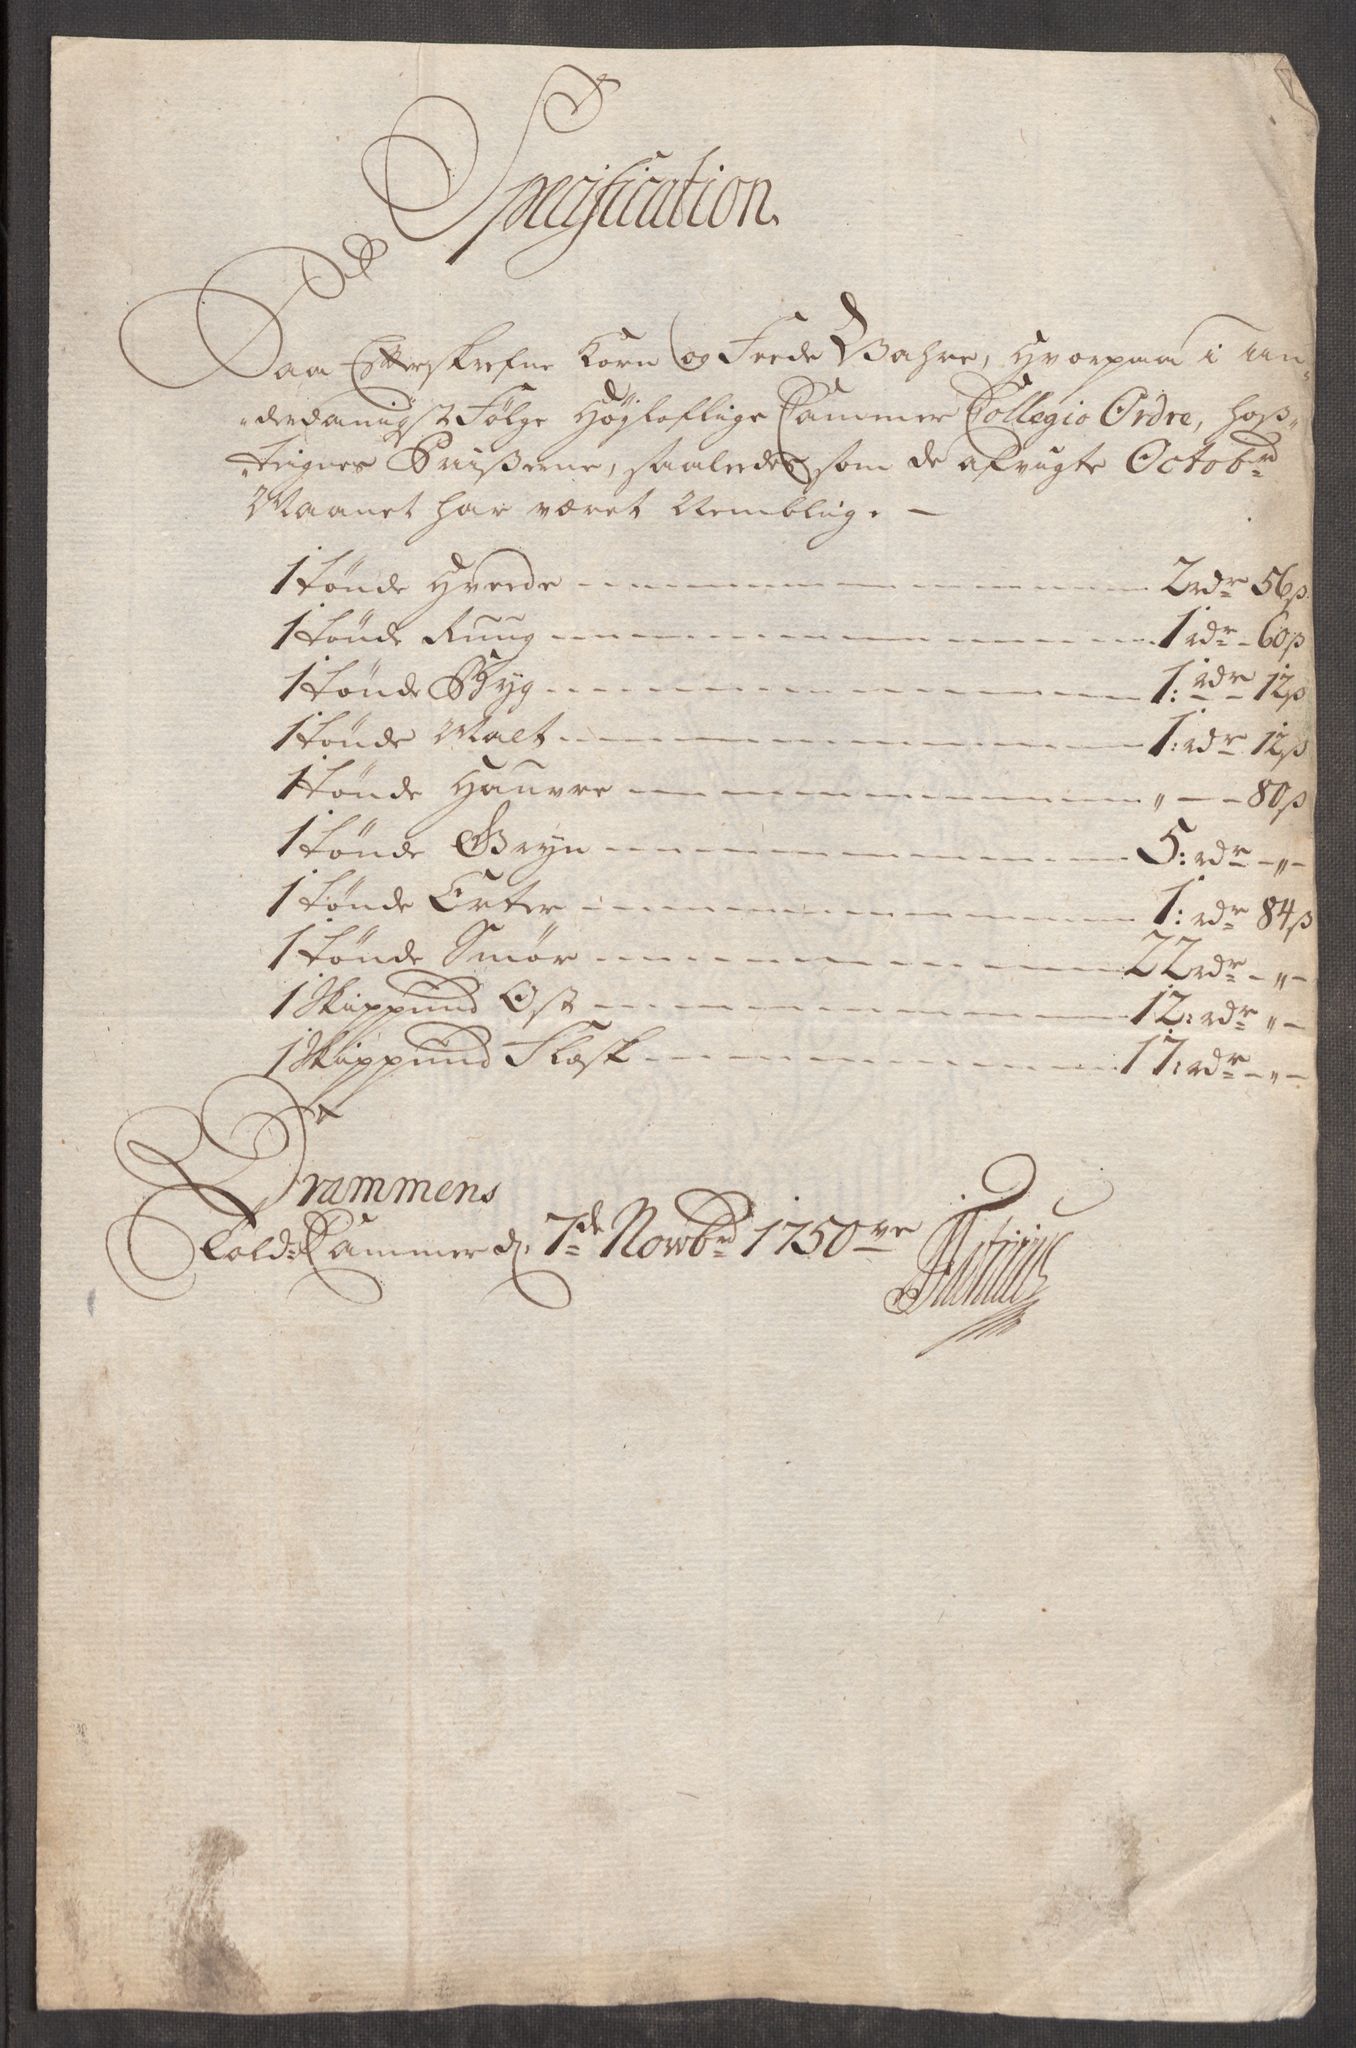 Specification
Paa Efterskrefne Korn og Feede Wahre, Hvorpaa i un„
„derdanigst Følge Høyloflige Cammer Collegio Ordre, hoß„
„teignes Prißerne, saaledes som de afvigte Octobr
Maanet har været Nemblig. —
1 tønde Hveede - - - 2 rdr 56 ß
1 tønde Ruug - - - 1 rdr - 60 ß
1 tønde Byg - - - 1: rdr 12 ß
1 tønde Malt - - - 1: rdr 12 ß
1 tønde Hauvre - - - „ - - 80 ß
1 tønde Gryn - - - 5: rdr - „ -
1 tønde Erter - - - 1: rdr 84 ß
1 tønde Smør - - - 22 rdr - „ -
1 Skippund Ost - - - 12: rdr „ -
1 Skippund Flæsk - - - 17: rdr - „ -
Drammens
Told Cammer d. 7de Novbr 1750 ve